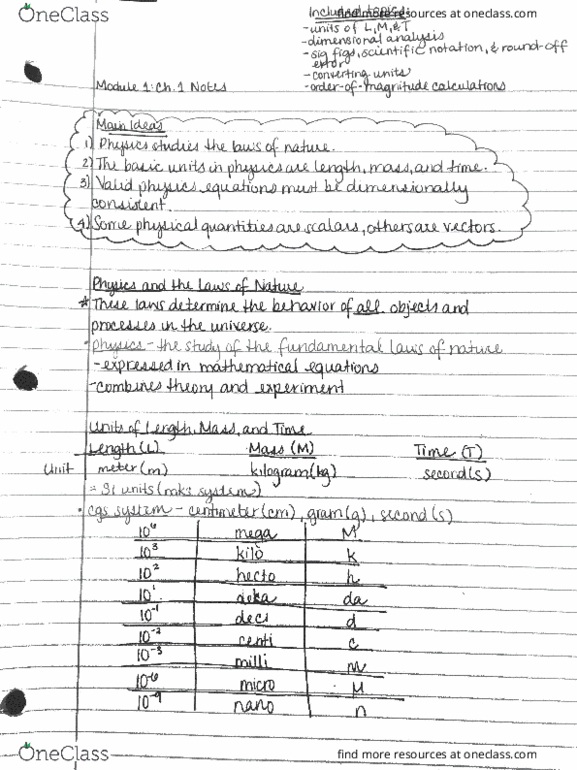 OneClass
find more resources at oneclass.com
Included topics:
-units of L, M, & T
-dimensional analysis
-sig figs, scientific notation, & round-off
error
-converting units
-order-of-magnitude calculations
Module 1: Ch. 1 Notes
Main Ideas
1) Physics studies the laws of nature.
2) The basic units in physics are length, mass, and time.
3) Valid physics equations must be dimensionally
consistent.
4) Some physical quantities are scalars, others are vectors.
Physics and the Laws of Nature
* These laws determine the behavior of all objects and
processes in the universe.
- physics - the study of the fundamental laws of nature
-expressed in mathematical equations
-combines theory and experiment
Units of Length, Mass, and Time
Length (L) Mass (M) Time (T)
Unit meter (m) kilogram (kg) second (s)
= SI units (mks system)
• cgs system - centimeter (cm), gram (g), second (s)
10⁶ mega M
10³ kilo k
10² hecto h
10¹ deka da
10⁻¹ deci d
10⁻² centi c
10⁻³ milli m
10⁻⁶ micro μ
10⁻⁹ nano n
OneClass
find more resources at oneclass.com